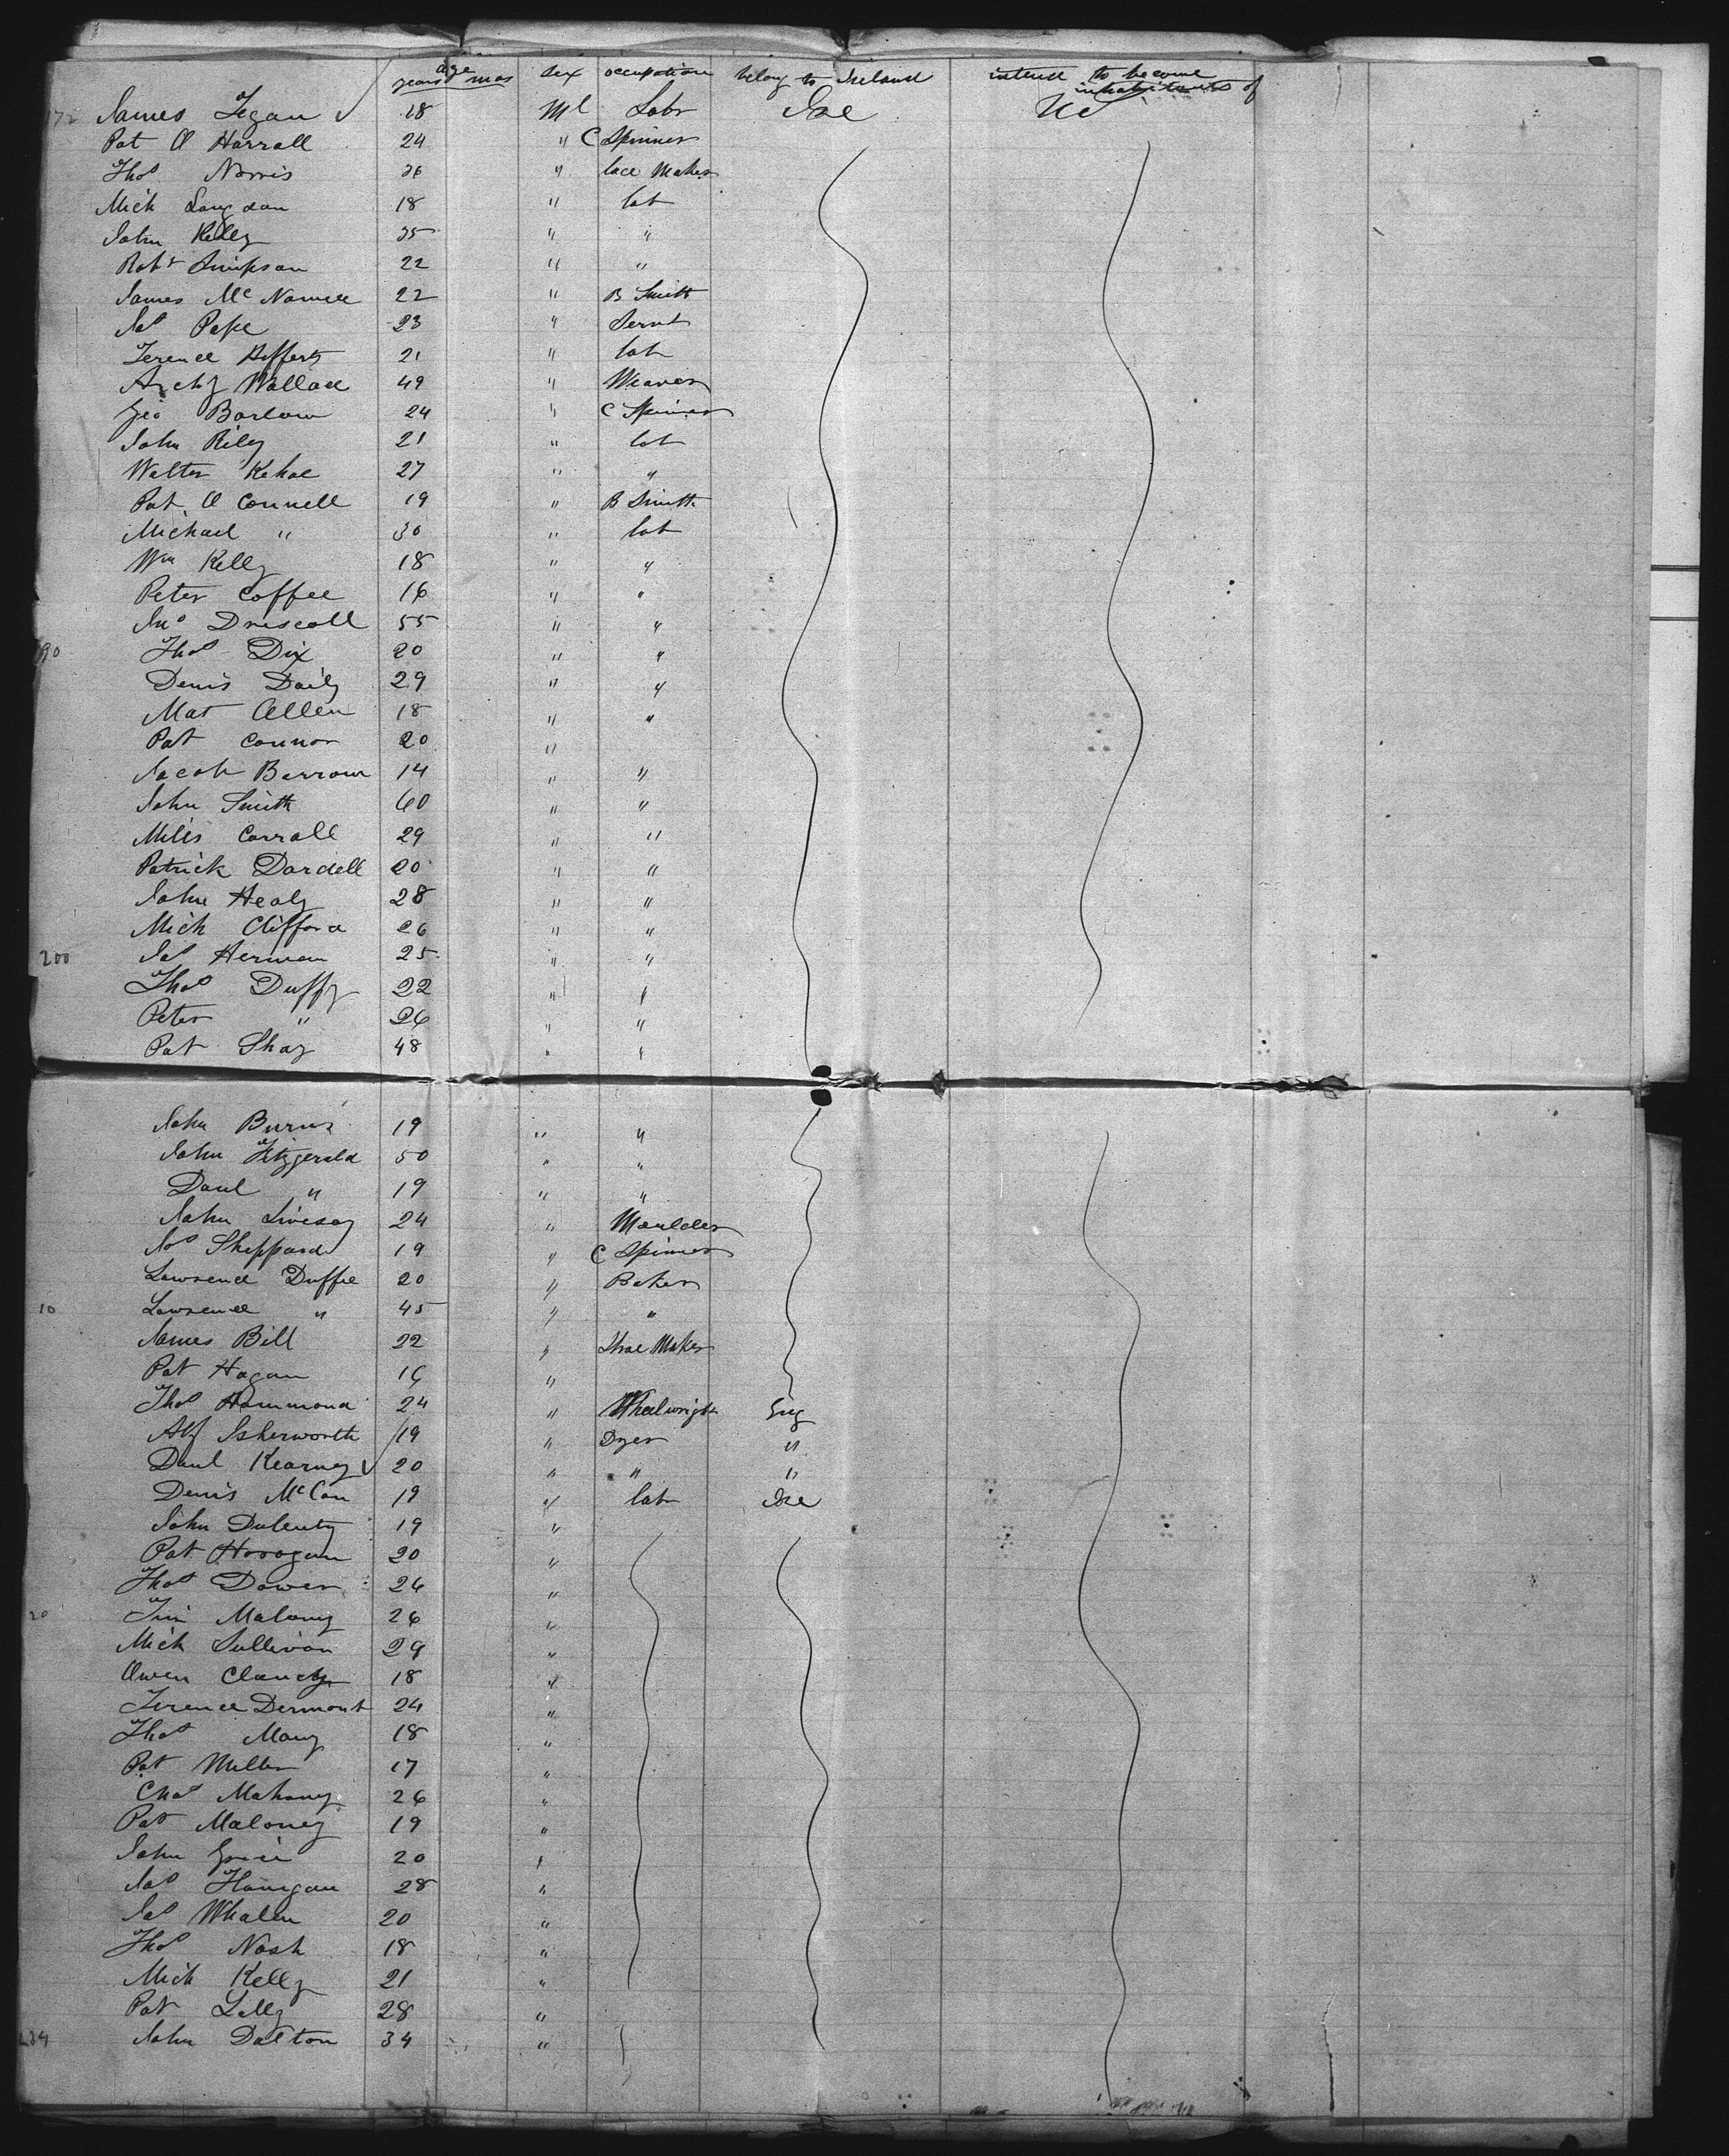 age
years mos sex occupation belong to Ireland intend to become
inhabitants of
172 James Fegan 18 Ml Labr Ire US
Pat O Harrall 24 " C Spinner
Thos Norris 36 " lace Maker
Mick Langdon 18 " lab
John Kelly 35 " "
Robt Simpson 22 " "
James Mc Namee 22 " B Smith
Jas Pope 23 " Servt
Terence Hefferty 21 " lab
Archy Wallace 49 " Weaver
Geo Barlow 24 " C Spinner
John Riley 21 " lab
Walter Kehoe 27 " "
Pat O Connell 19 " B Smith
Michael " 30 " lab
Wm Kelly 18 " "
Peter Coffee 16 " "
Jno Driscoll 55 " "
90 Thos Dix 20 " "
Denis Daily 29 " "
Mat Allen 18 " "
Pat Connor 20 "
Jacob Barrow 14 " "
John Smith 60 " "
Miles Carroll 29 " "
Patrick Dardell 20 " "
John Healy 28 " "
Mick Clifford 26 " "
200 Jas Herman 25 " "
Thos Duffy 22 " "
Peter " 26 " "
Pat Shay 48 " "
John Burns 19 " "
John Fitzgerald 50 " "
Danl " 19 " "
John Livesay 24 " Moulder
Jos Sheppard 19 " C Spinner
Lawrence Duffee 20 " Baker
10 Lawrence " 45 " "
James Bill 22 " Shoe Maker
Pat Hagan 16 "
Thos Hammond 24 " Wheelwright Eng
Alf Isherworth 19 " Dyer "
Danl Kearney 20 " " "
Denis McCan 19 " lab Ire
John Dulenty 19 "
Pat Horogan 20 "
Thos Dower 26 "
20 Tim Malony 26 "
Mick Sullivan 29 "
Owen Clancy 18 "
Terence Dermont 24 "
Thos Many 18 "
Pat Miller 17 "
Chas Mahony 26 "
Pat Maloney 19 "
John Grice 20 "
Jas Hanigan 28 "
Jas Whalen 20 "
Thos Nash 18 "
Mick Kelly 21 "
Pat Lilly 28 "
234 John Dalton 34 "